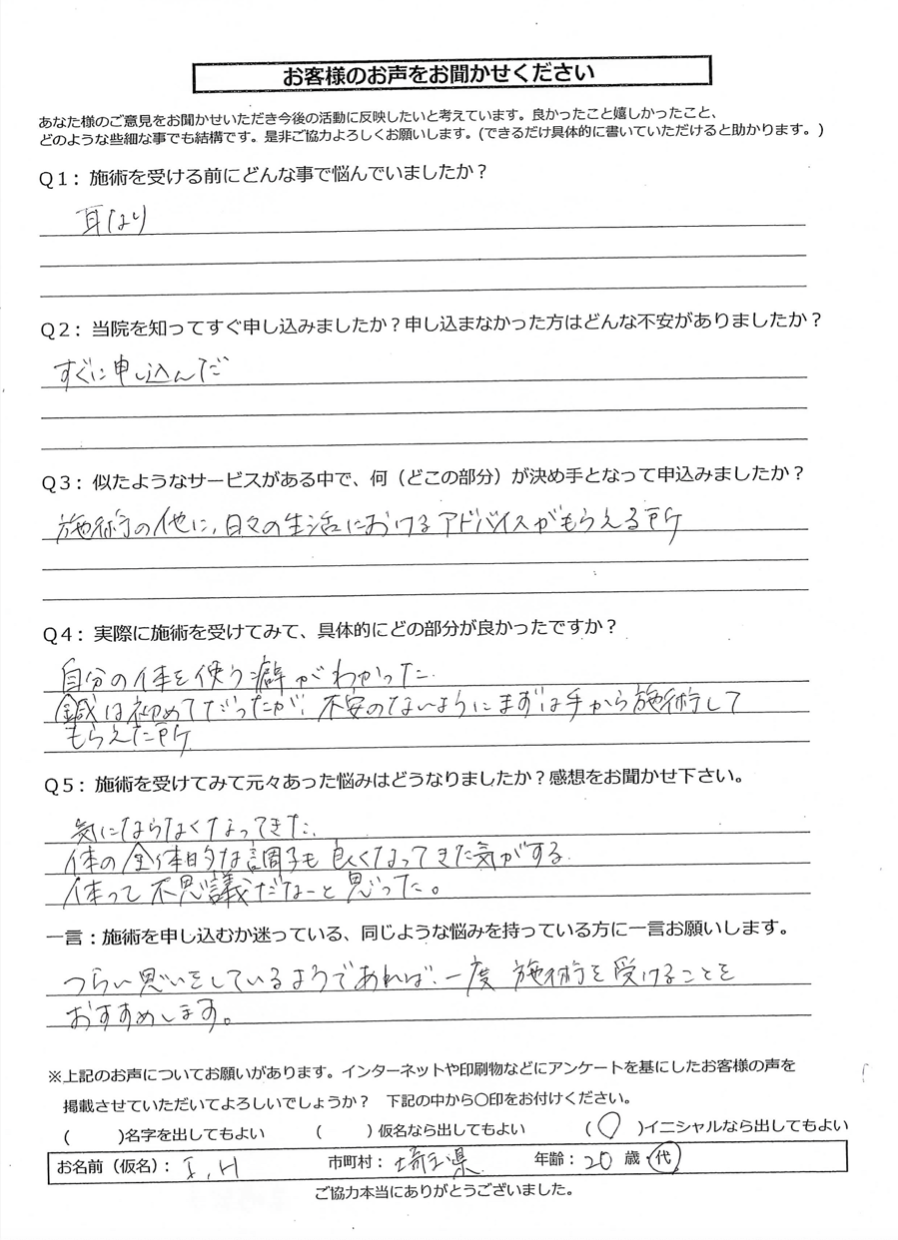 お客様のお声をお聞かせください
あなた様のご意見をお聞かせいただき今後の活動に反映したいと考えています。良かったこと嬉しかったこと、
どのような些細な事でも結構です。是非ご協力よろしくお願いします。(できるだけ具体的に書いていただけると助かります。)
Q1：施術を受ける前にどんな事で悩んでいましたか？
耳なり
Q2：当院を知ってすぐ申し込みましたか？申し込まなかった方はどんな不安がありましたか？
すぐに申し込んだ
Q3：似たようなサービスがある中で、何（どこの部分）が決め手となって申込みましたか？
施術の他に、日々の生活におけるアドバイスがもらえる所
Q4：実際に施術を受けてみて、具体的にどの部分が良かったですか？
自分の体を使う癖がわかった。
鍼は初めてだったが、不安のないようにまずは手から施術して
もらえた所
Q5：施術を受けてみて元々あった悩みはどうなりましたか？感想をお聞かせ下さい。
気にならなくなってきた。
体の全体的な調子も良くなってきた気がする。
体って不思議だなーと思った。
一言：施術を申し込むか迷っている、同じような悩みを持っている方に一言お願いします。
つらい思いをしているようであれば、一度施術を受けることを
おすすめします。
※上記のお声についてお願いがあります。インターネットや印刷物などにアンケートを基にしたお客様の声を
掲載させていただいてよろしいでしょうか？　下記の中から〇印をお付けください。
(　　)名字を出してもよい　(　　)仮名なら出してもよい　(〇)イニシャルなら出してもよい
お名前（仮名）：I.H　市町村：埼玉県　年齢：20 歳・代
ご協力本当にありがとうございました。